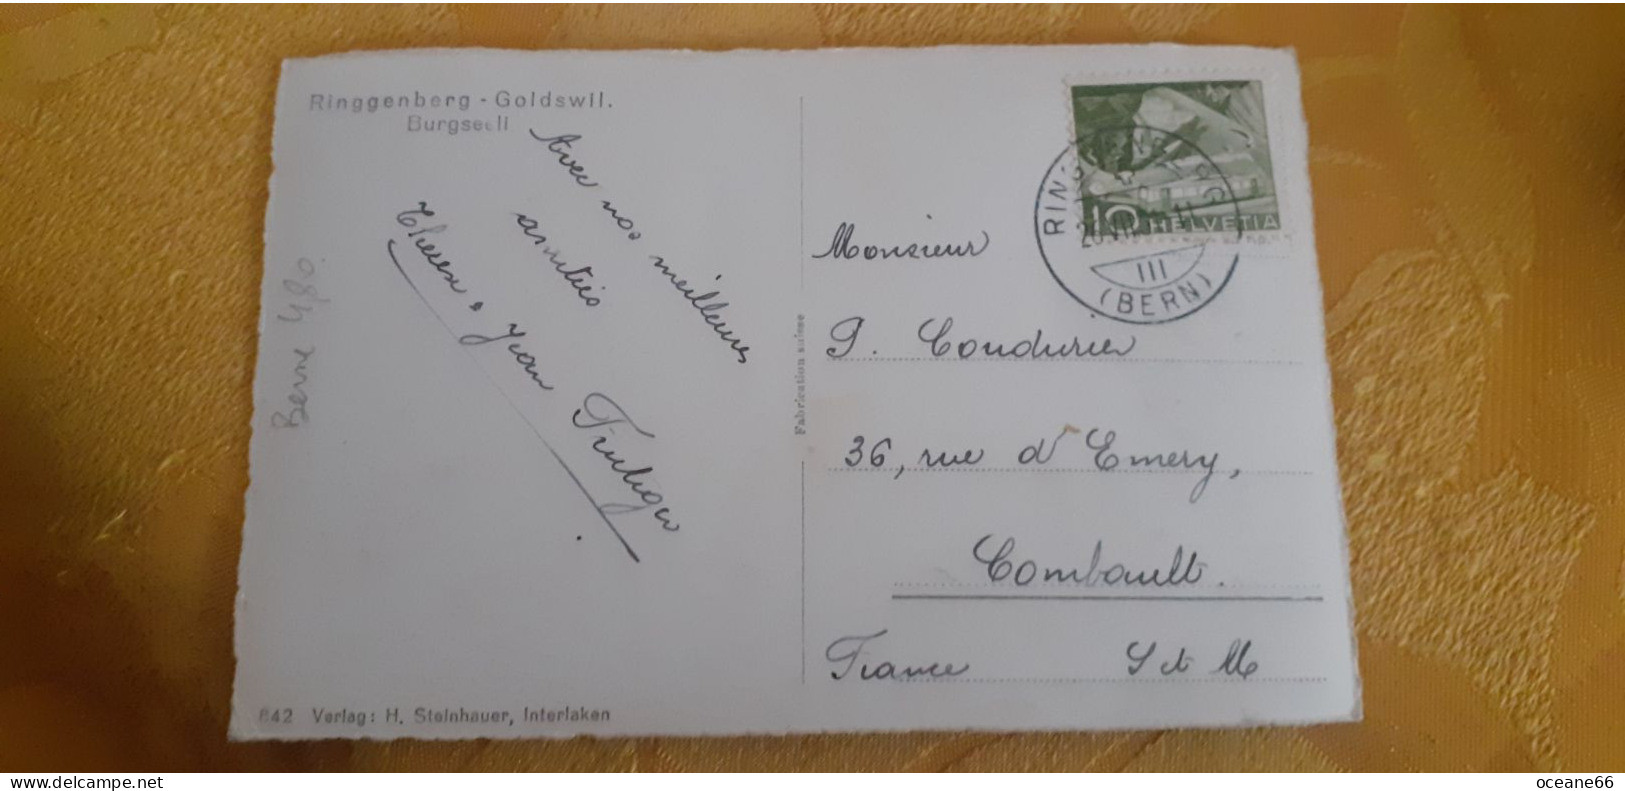 Ringgenberg - Goldswil.
Burgseeli
Avec nos meilleures
amitiés
Jean
Berne 4,80.
Fabrication suisse
RINGGENBERG
III
(BERN)
10 HELVETIA
Monsieur
P. Condurier
36, rue d'Emery,
Combault.
France S et M
842 Verlag: H. Steinhauer, Interlaken
https://www.delcampe.net
oceane66